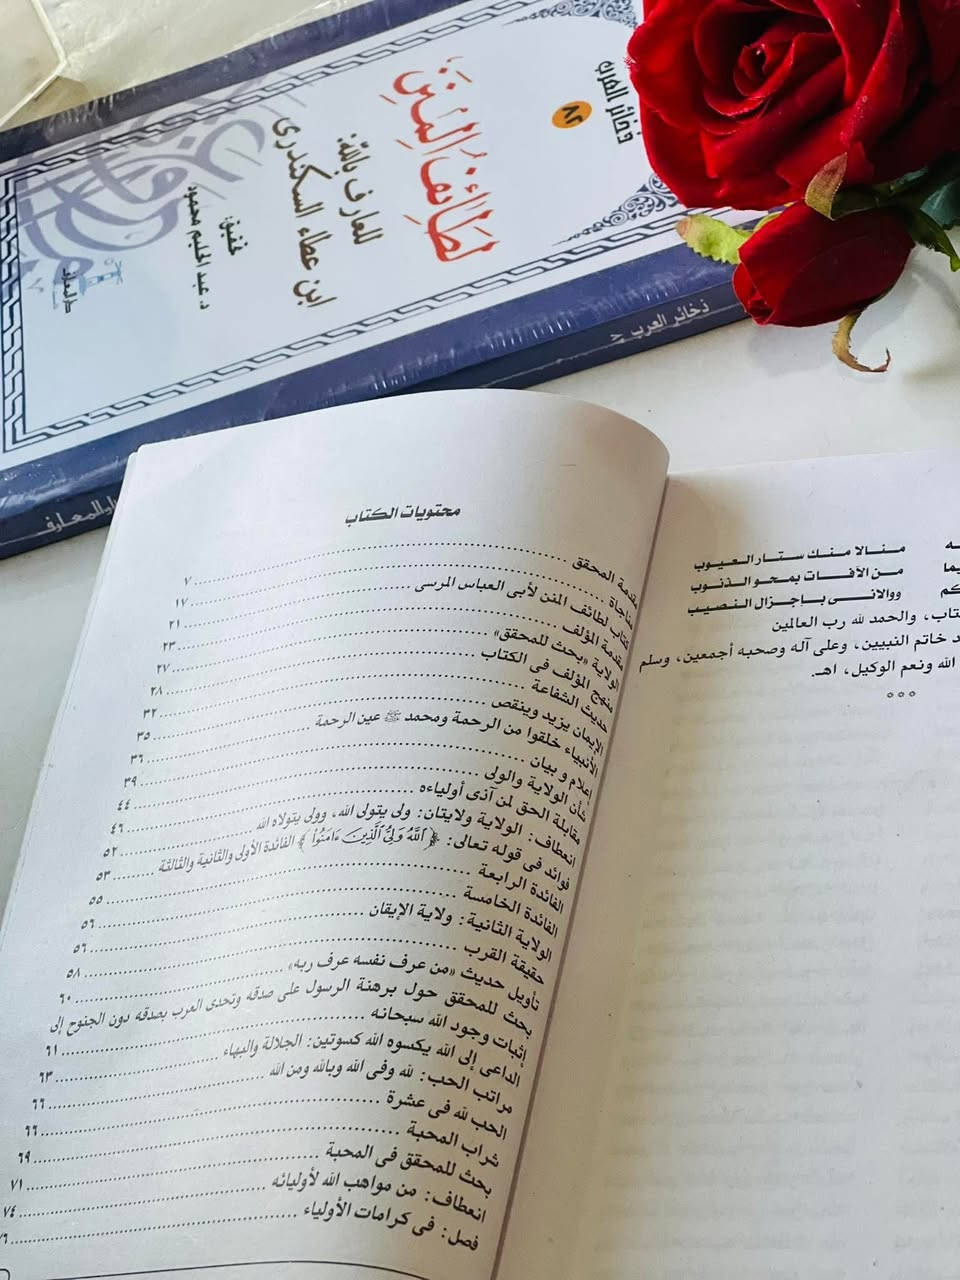 ذخائر العرب
٨٢
لَطَائِفُ المِنَنِ
للعارف بالله:
ابن عطاء السكندرى
تحقيق:
د. عبد الحليم محمود
دار المعارف
ذخائر العرب
دار المعارف
محتويات الكتاب
مقدمة المحقق ........ ٧
مناجاة ........ ١٧
كتاب لطائف المنن لأبى العباس المرسى ........ ٢١
مقدمة المؤلف ........ ٢٣
الولاية «بحث للمحقق» ........ ٢٧
منهج المؤلف فى الكتاب ........ ٢٨
حديث الشفاعة ........ ٣٢
الإيمان يزيد وينقص ........ ٣٥
الأنبياء خلقوا من الرحمة ومحمد ﷺ عين الرحمة ........ ٣٦
إعلام و بيان ........ ٣٩
شأن الولاية والولى ........ ٤٤
مقابلة الحق لمن آذى أولياءه ........ ٤٦
انعطاف: الولاية ولايتان: ولى يتولى الله، وولى يتولاه الله ........ ٥٢
فوائد فى قوله تعالى: ﴿ ٱللَّهُ وَلِىُّ ٱلَّذِينَ ءَامَنُوا۟ ﴾ الفائدة الأولى والثانية والثالثة ٥٣
الفائدة الرابعة ........ ٥٥
الفائدة الخامسة ........ ٥٦
الولاية الثانية: ولاية الإيقان ........ ٥٦
حقيقة القرب ........ ٥٨
تأويل حديث «من عرف نفسه عرف ربه» ........ ٦٠
بحث للمحقق حول برهنة الرسول على صدقه وتحدى العرب بصدقه دون الجنوح إلى
إثبات وجود الله سبحانه ........ ٦١
الداعى إلى الله يكسوه الله كسوتين: الجلالة والبهاء ........ ٦٣
مراتب الحب: لله وفى الله وبالله ومن الله ........ ٦٦
الحب لله فى عشرة ........ ٦٦
شراب المحبة ........ ٦٩
بحث للمحقق فى المحبة ........ ٧١
انعطاف: من مواهب الله لأوليائه ........ ٧٤
فصل: فى كرامات الأولياء ........
منالا منك ستار العيوب
من الآفات بمحو الذنوب
ووالانى بإجزال النصيب
والحمد لله رب العالمين
خاتم النبيين، وعلى آله وصحبه أجمعين، وسلم
الله ونعم الوكيل، اهـ.